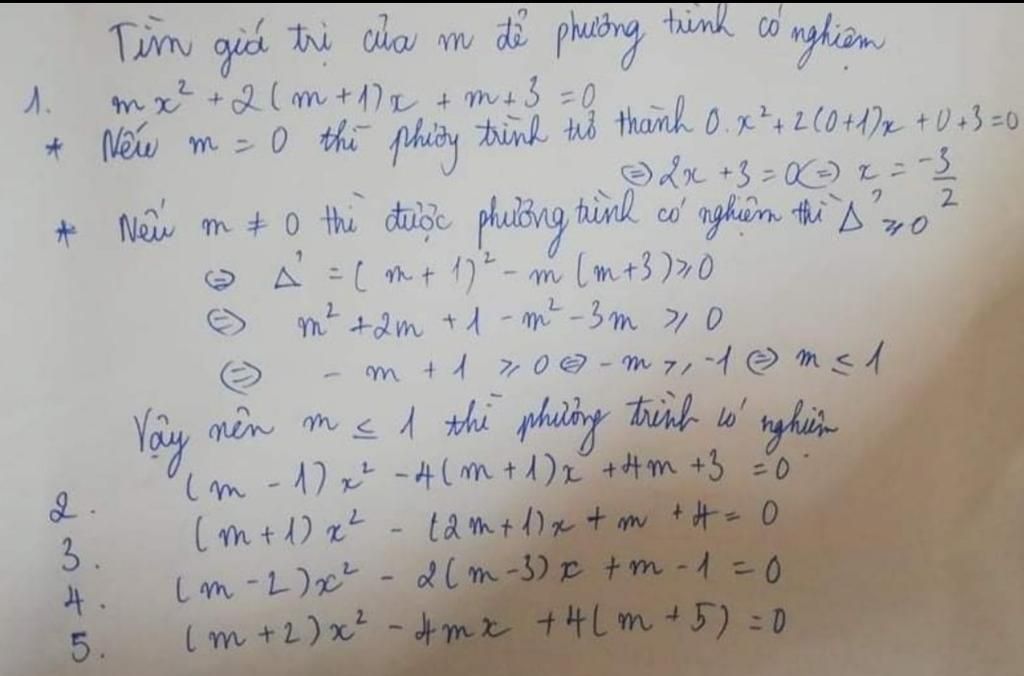 Tìm giá trị của m để phương trình có nghiệm
1. mx² + 2(m+1)x + m+3 = 0
* Nếu m = 0 thì phương trình trở thành 0.x² + 2(0+1)x + 0+3=0
⇔ 2x + 3 = 0 ⇔ x = -3/2
* Nếu m ≠ 0 thì được phương trình có nghiệm thì Δ' ⩾ 0
⇔ Δ' = (m+1)² - m(m+3) ⩾ 0
⇔ m² + 2m + 1 - m² - 3m ⩾ 0
⇔ - m + 1 ⩾ 0 ⇔ - m ⩾ -1 ⇔ m ≤ 1
Vậy nên m ≤ 1 thì phương trình có nghiệm
2. (m - 1)x² - 4(m+1)x + 4m + 3 = 0
3. (m+1)x² - (2m+1)x + m + 4 = 0
4. (m-2)x² - 2(m-3)x + m - 1 = 0
5. (m+2)x² - 4mx + 4(m+5) = 0